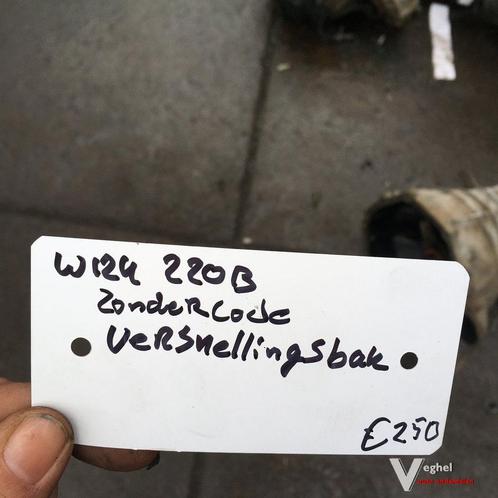 W124 220B
zonder code
Versnellingsbak
€250
Veghel